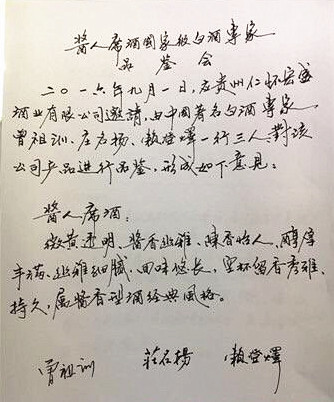 醬人席酒國家級白酒專家
品鉴会
二〇一六年九月一日,应贵州仁怀宏盛
酒业有限公司邀請,由中国著名白酒專家,
曾祖训、庄名扬、賴登燡一行三人,對该
公司产品进行品鉴,形成如下意見:
醬人席酒:
微黄透明、醬香幽雅、陳香怡人、醇厚
丰满、幽雅细腻、回味悠长,空杯留香秀雅
持久,属醬香型酒经典風格。
曾祖训 莊名楊 賴登燡